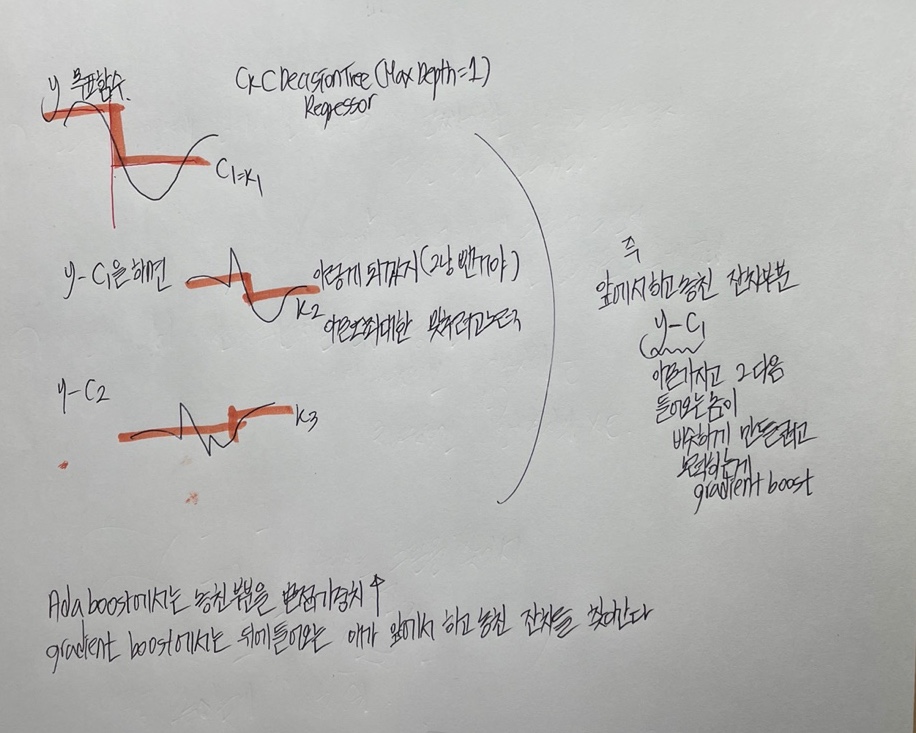 y 목표함수.
CKC DecisionTree (Max Depth=1)
Regressor
C1=K1
y-C1을 하면
이렇게 되겠지 (그냥 뺀거야)
K2
이걸또최대한 맞추려고노력
y-C2
K3
즉
앞에서하고놓친 잔차부분
y-C1
이걸가지고 그다음
들어오는놈이
비슷하게 만들려고
노력하는게
gradient boost
Adaboost에서는 놓친부분을 가중치↑
gradient boost에서는 뒤에들어오는 애가 앞에서 하고놓친 잔차들을 찾아간다